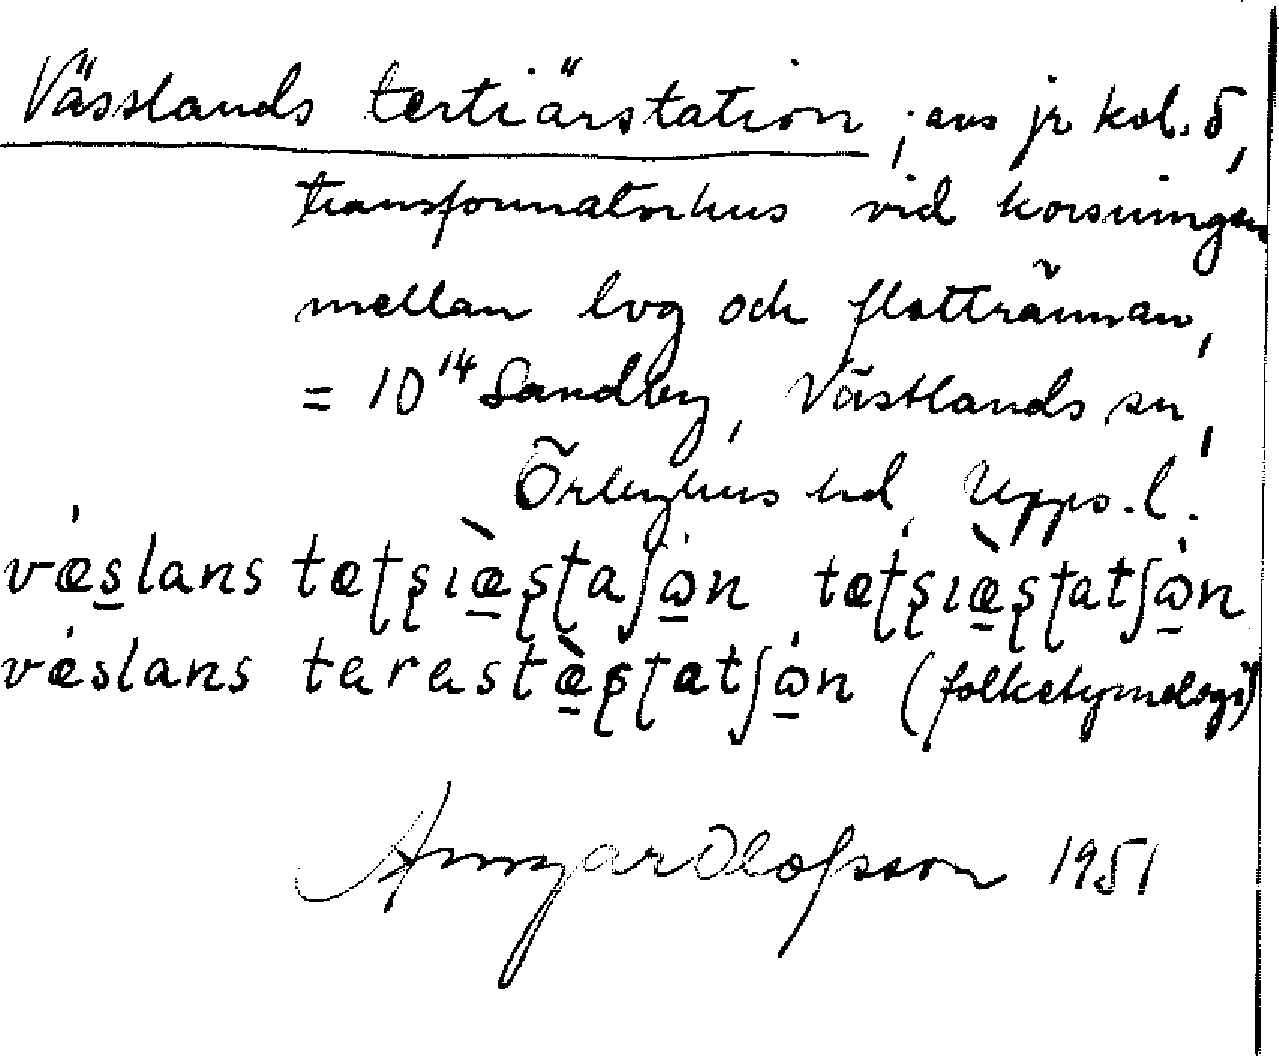 Vässlands tertiärstation ; avs jr kol. 5,
transformatorhus vid korsningen
mellan lvg och flottrännan,
= 10¹⁴ Sandby, Västlands sn,
Örbyhus hd, Upps.l.
væ̀s̲lans tæʈʂıæ̲̀ʂʈaʃω̲̇n tæʈʂıæ̲̀ʂʈatʃω̲̇n
væ̀slans tarastæ̲̀ʂʈatʃω̲̇n (folketymologi)
Ansgar Olofsson 1951